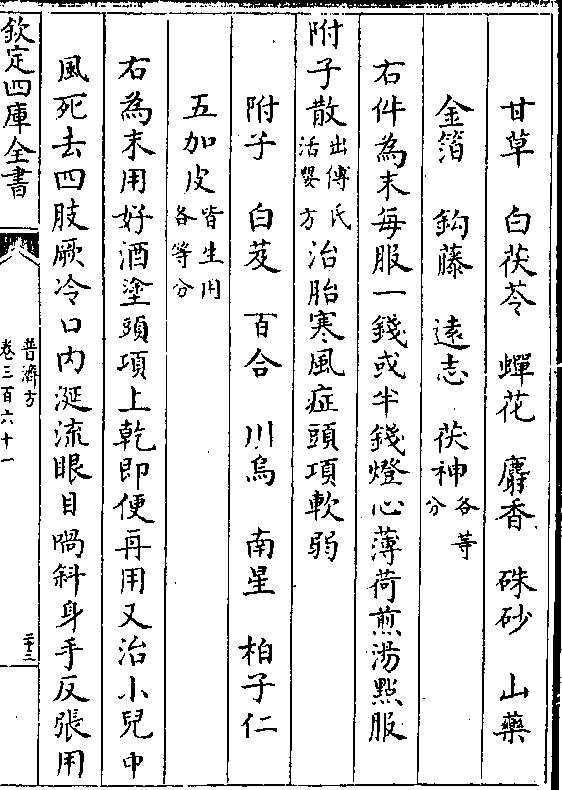 甘草 白茯苓 蟬花 麝香 硃砂 山藥
金箔 鈎藤 遠志 茯神各等分
右件為末每服一錢或半錢燈心薄荷煎湯㸃服
附子散出傅氏活嬰方治胎寒風症頭項軟弱
附子 白芨 百合 川烏 南星 柏子仁
五加皮皆生用各等分
右為末用好酒塗頭項上乾即便再用又治小兒中
風死去四肢厥冷口内涎流眼目喎斜身手反張用
欽定四庫全書
普濟方
卷三百六十一
二十三